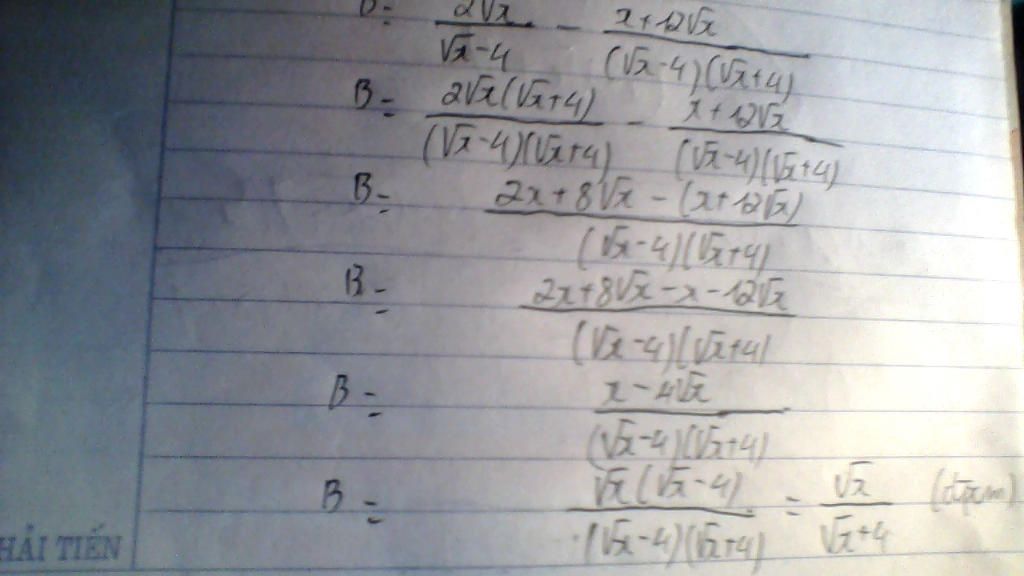 B = 2√x / (√x - 4) - (x + 12√x) / ((√x - 4)(√x + 4))
B = 2√x(√x + 4) / ((√x - 4)(√x + 4)) - (x + 12√x) / ((√x - 4)(√x + 4))
B = (2x + 8√x - (x + 12√x)) / ((√x - 4)(√x + 4))
B = (2x + 8√x - x - 12√x) / ((√x - 4)(√x + 4))
B = (x - 4√x) / ((√x - 4)(√x + 4))
B = √x(√x - 4) / ((√x - 4)(√x + 4)) = √x / (√x + 4) (đpcm)
HẢI TIẾN